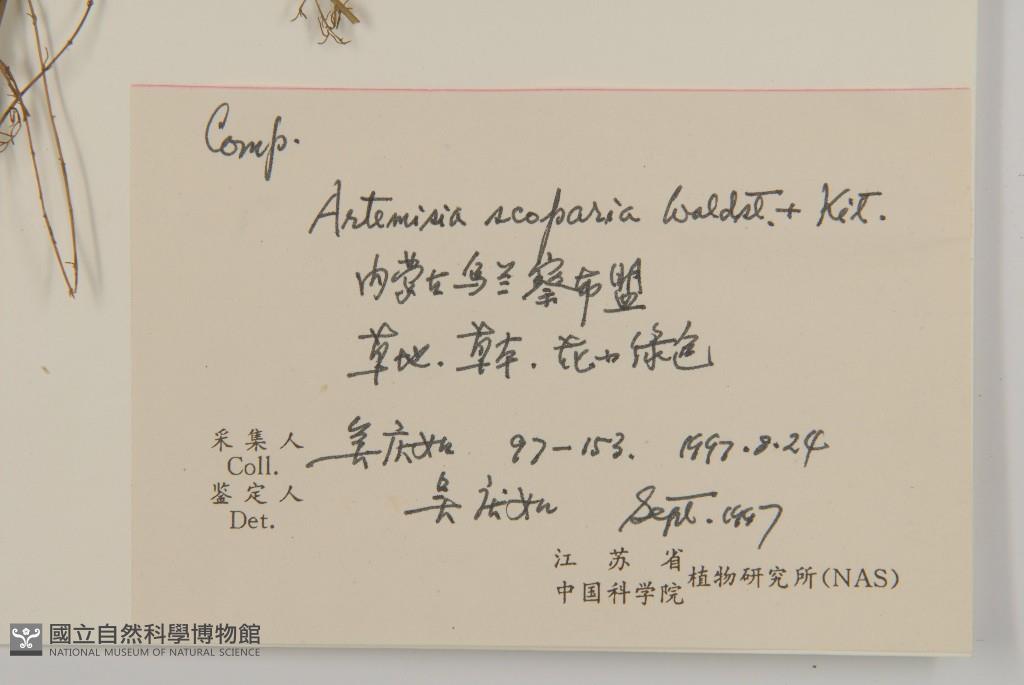 Comp.
Artemisia scoparia Waldst. + Kit.
内蒙古乌兰察布盟
草地. 草本. 花小绿色
采集人 吴庆如 97-153. 1997.8.24
Coll.
鉴定人 吴庆如 Sept. 1997
Det.
江苏省
中国科学院 植物研究所(NAS)
國立自然科學博物館
NATIONAL MUSEUM OF NATURAL SCIENCE